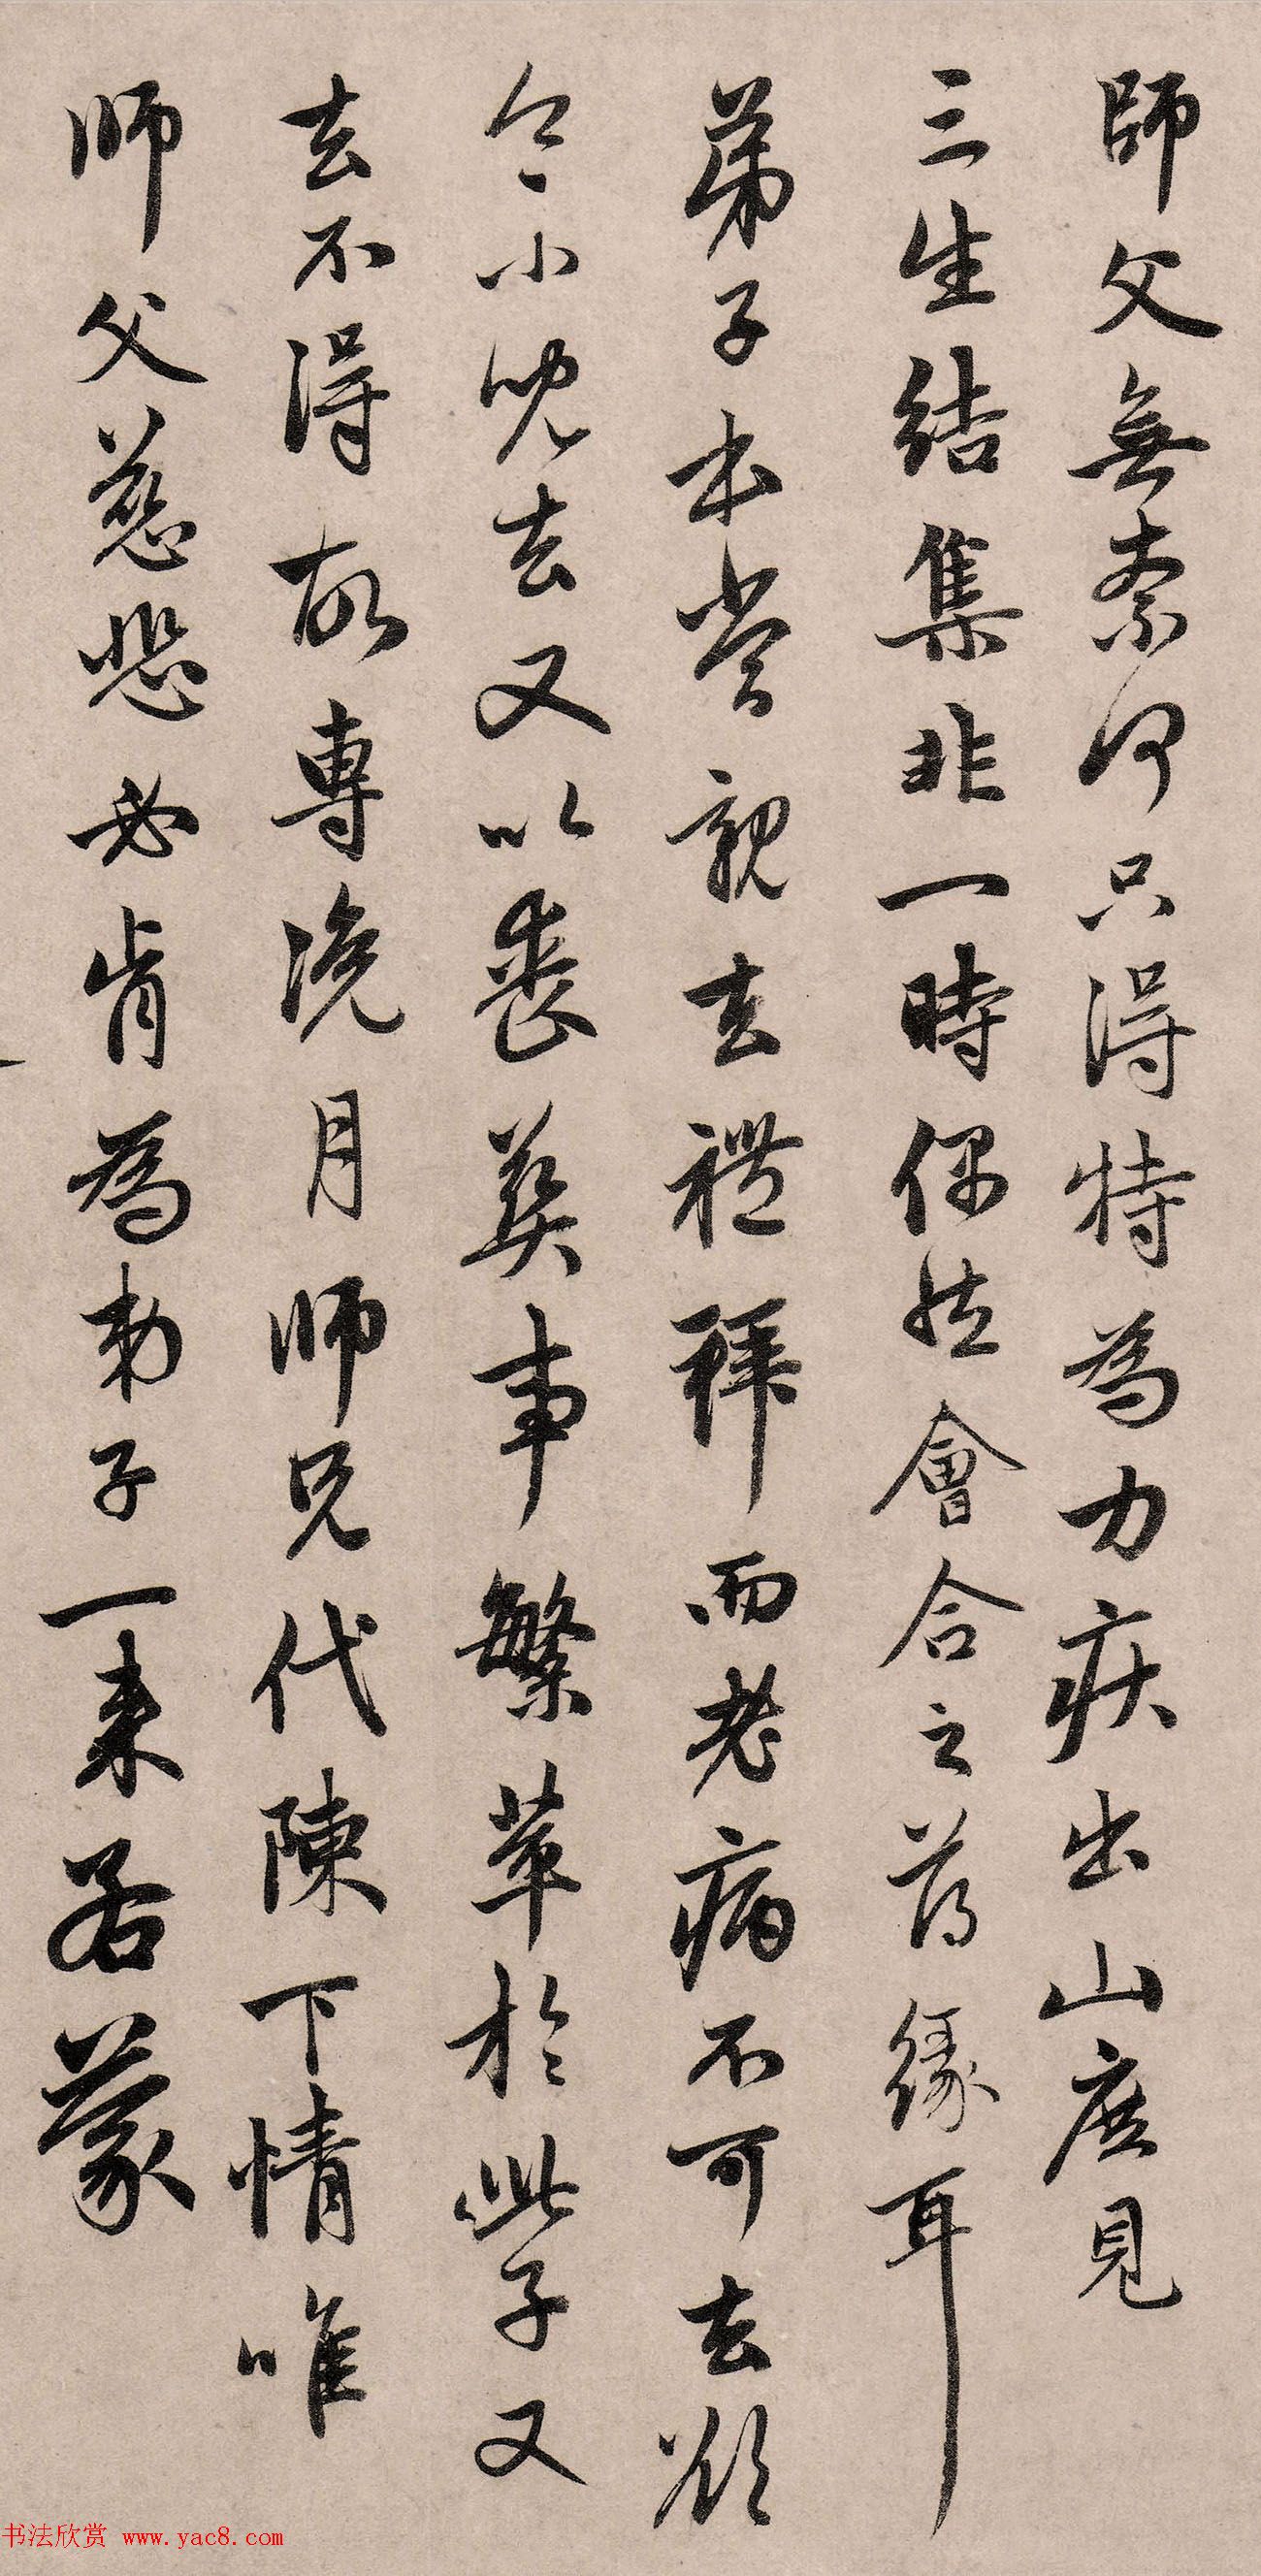 師父無奈何只得特為力疾出山庶見
三生結集非一時偶然會合之薄緣耳
弟子本當親去禮拜而老病不可去欲
令小兒去又以喪葬事繁萃於此子又
去不得故專浼月師兄代陳下情唯
師父慈悲必肯為弟子一来若蒙
书法欣赏 www.yac8.com